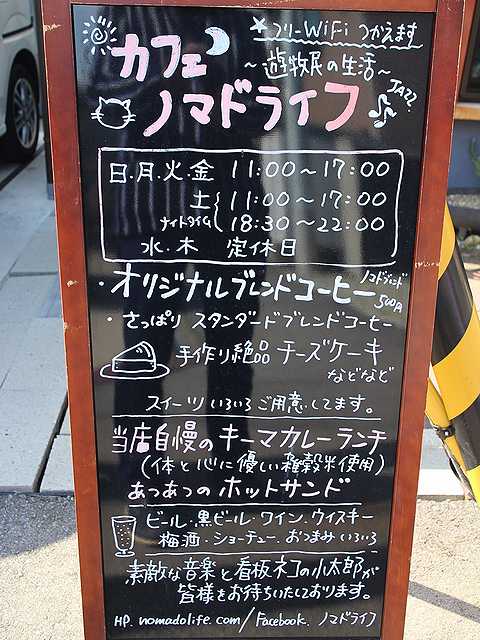 *フリーWiFi つかえます
カフェ
～遊牧民の生活～
JAZZ
ノマドライフ
日.月.火.金 11:00～17:00
土 11:00～17:00
ナイトタイム 18:30～22:00
水.木 定休日
・オリジナルブレンドコーヒー ノマドブレンド
500円
・さっぱり スタンダードブレンドコーヒー
手作り絶品 チーズケーキ
などなど
スイーツ いろいろ ご用意してます。
当店自慢の キーマカレーランチ
(体と心に優しい雑穀米使用)
あつあつの ホットサンド
ビール・黒ビール・ワイン・ウイスキー
梅酒・ショーチュー、おつまみ いろいろ
素敵な音楽と看板ネコの小太郎が
皆様をお待ちいたしております。
HP. nomadolife.com/Facebook. ノマドライフ